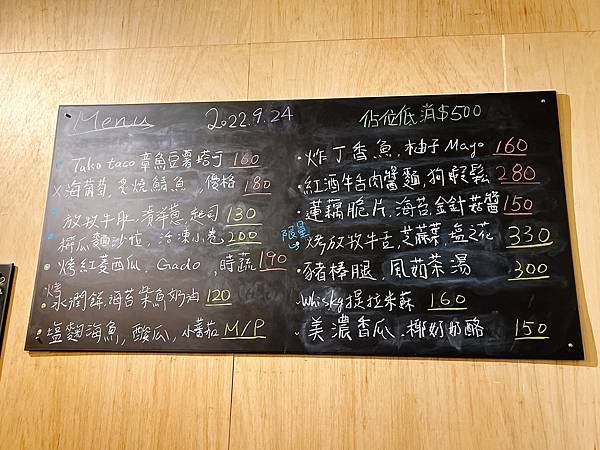 Menu 2022.9.24
Tako taco 章魚豆薯塔可 160
海葡萄, 炙燒鯖魚, 優格 180
放牧牛肚, 漬洋蔥, 起司 130
櫛瓜麵沙拉, 冷凍小卷 200
烤紅菱西瓜, Gado, 時蔬 190
烤永潤餅海苔柴魚奶油 120
塩麴海魚, 酸瓜, 小蕃茄 M/P
佔位低消$500
炸丁香魚, 柚子Mayo 160
紅酒牛舌肉醬麵, 狗蝦鬆 280
蓮藕脆片, 海苔金針菇醬 150
限量 烤放牧牛舌, 芝蔴葉, 盐之花 330
豬棒腿, 風茹茶湯 300
Whisky提拉米蘇 160
美濃香瓜, 椰奶奶酪 150